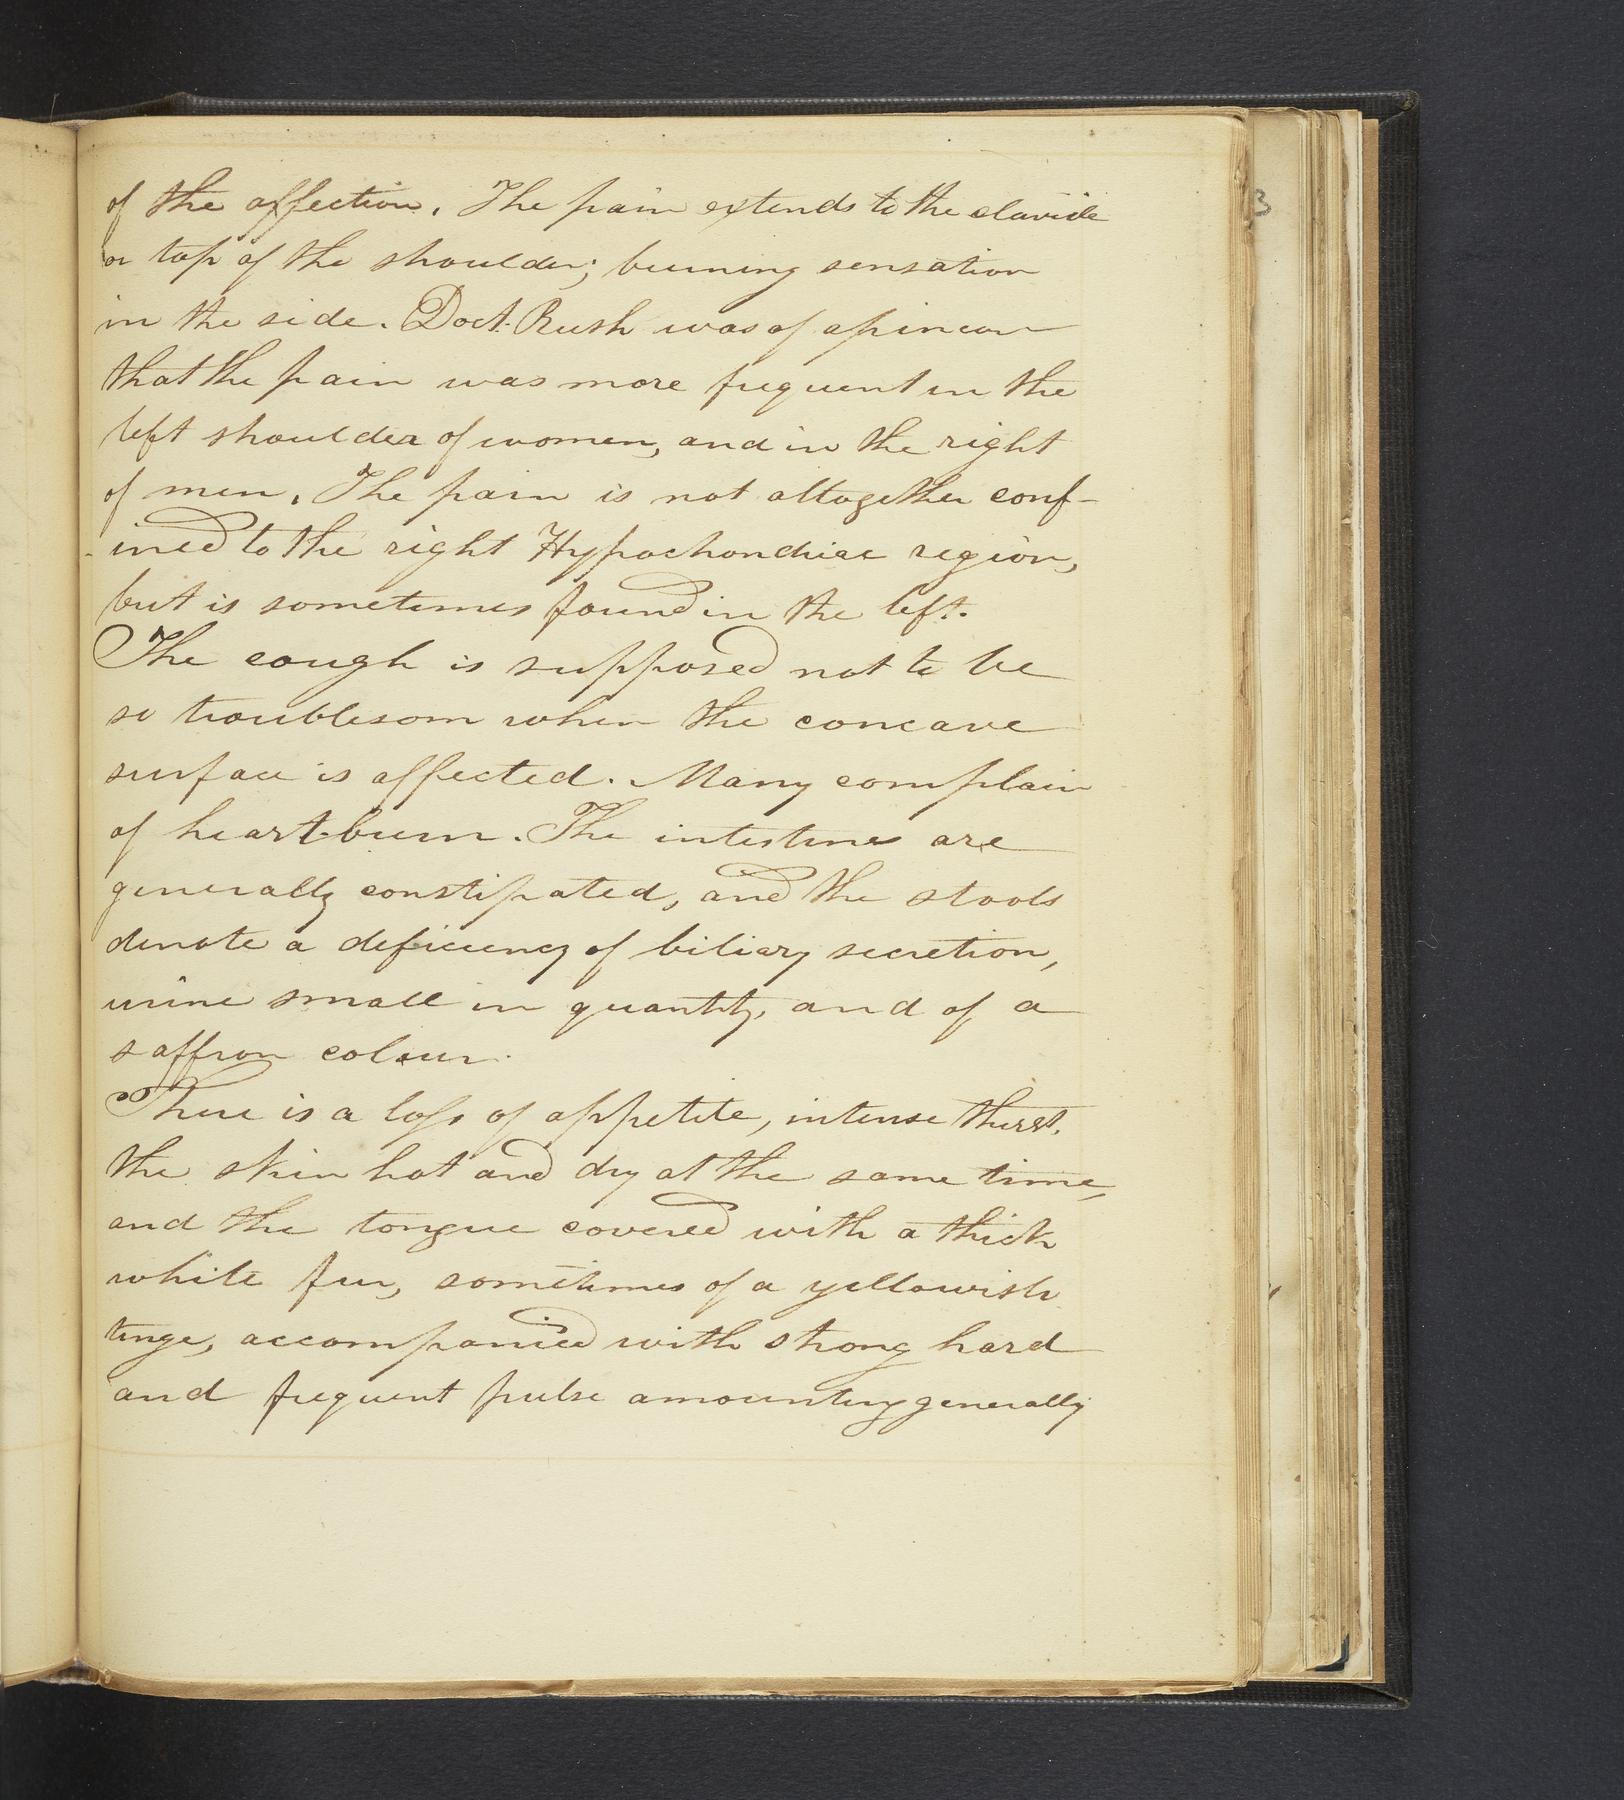 of the affection. The pain extends to the clavicle
or top of the shoulder; burning sensation
in the side. Doct. Rush was of opinion
that the pain was more frequent in the
left shoulder of women, and in the right
of men. The pain is not altogether conf-
-ined to the right Hypochondriac region,
but is sometimes found in the left.
The cough is supposed not to be
so troublesom when the concave
surface is affected. Many complain
of heart-burn. The intestines are
generally constipated, and the stools
denote a deficiency of biliary secretion,
urine small in quantity, and of a
saffron colour.
There is a loss of appetite, intense thirst.
the skin hot and dry at the same time,
and the tongue covered with a thick
white fur, sometimes of a yellowish
tinge, accompanied with strong hard
and frequent pulse amounting generally
3